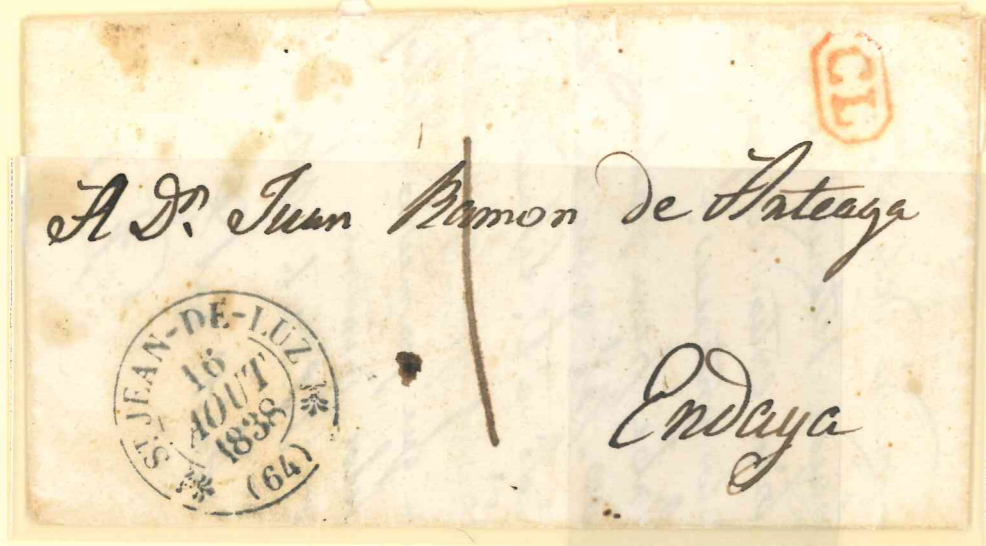 CL
A Dn. Juan Ramon de Arteaga
Endaya
ST JEAN-DE-LUZ
16
AOUT
1838
(64)